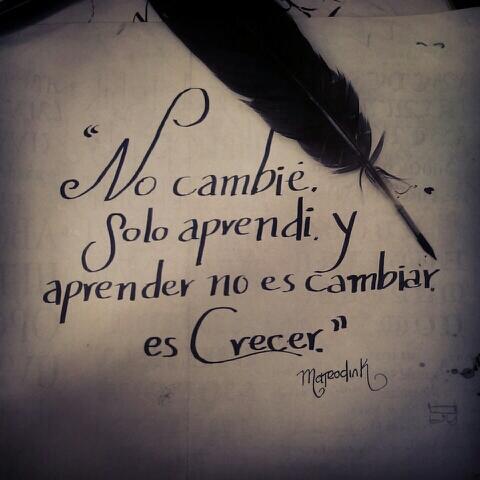 “No cambié.
Solo aprendi. y
aprender no es cambiar.
es Crecer.”